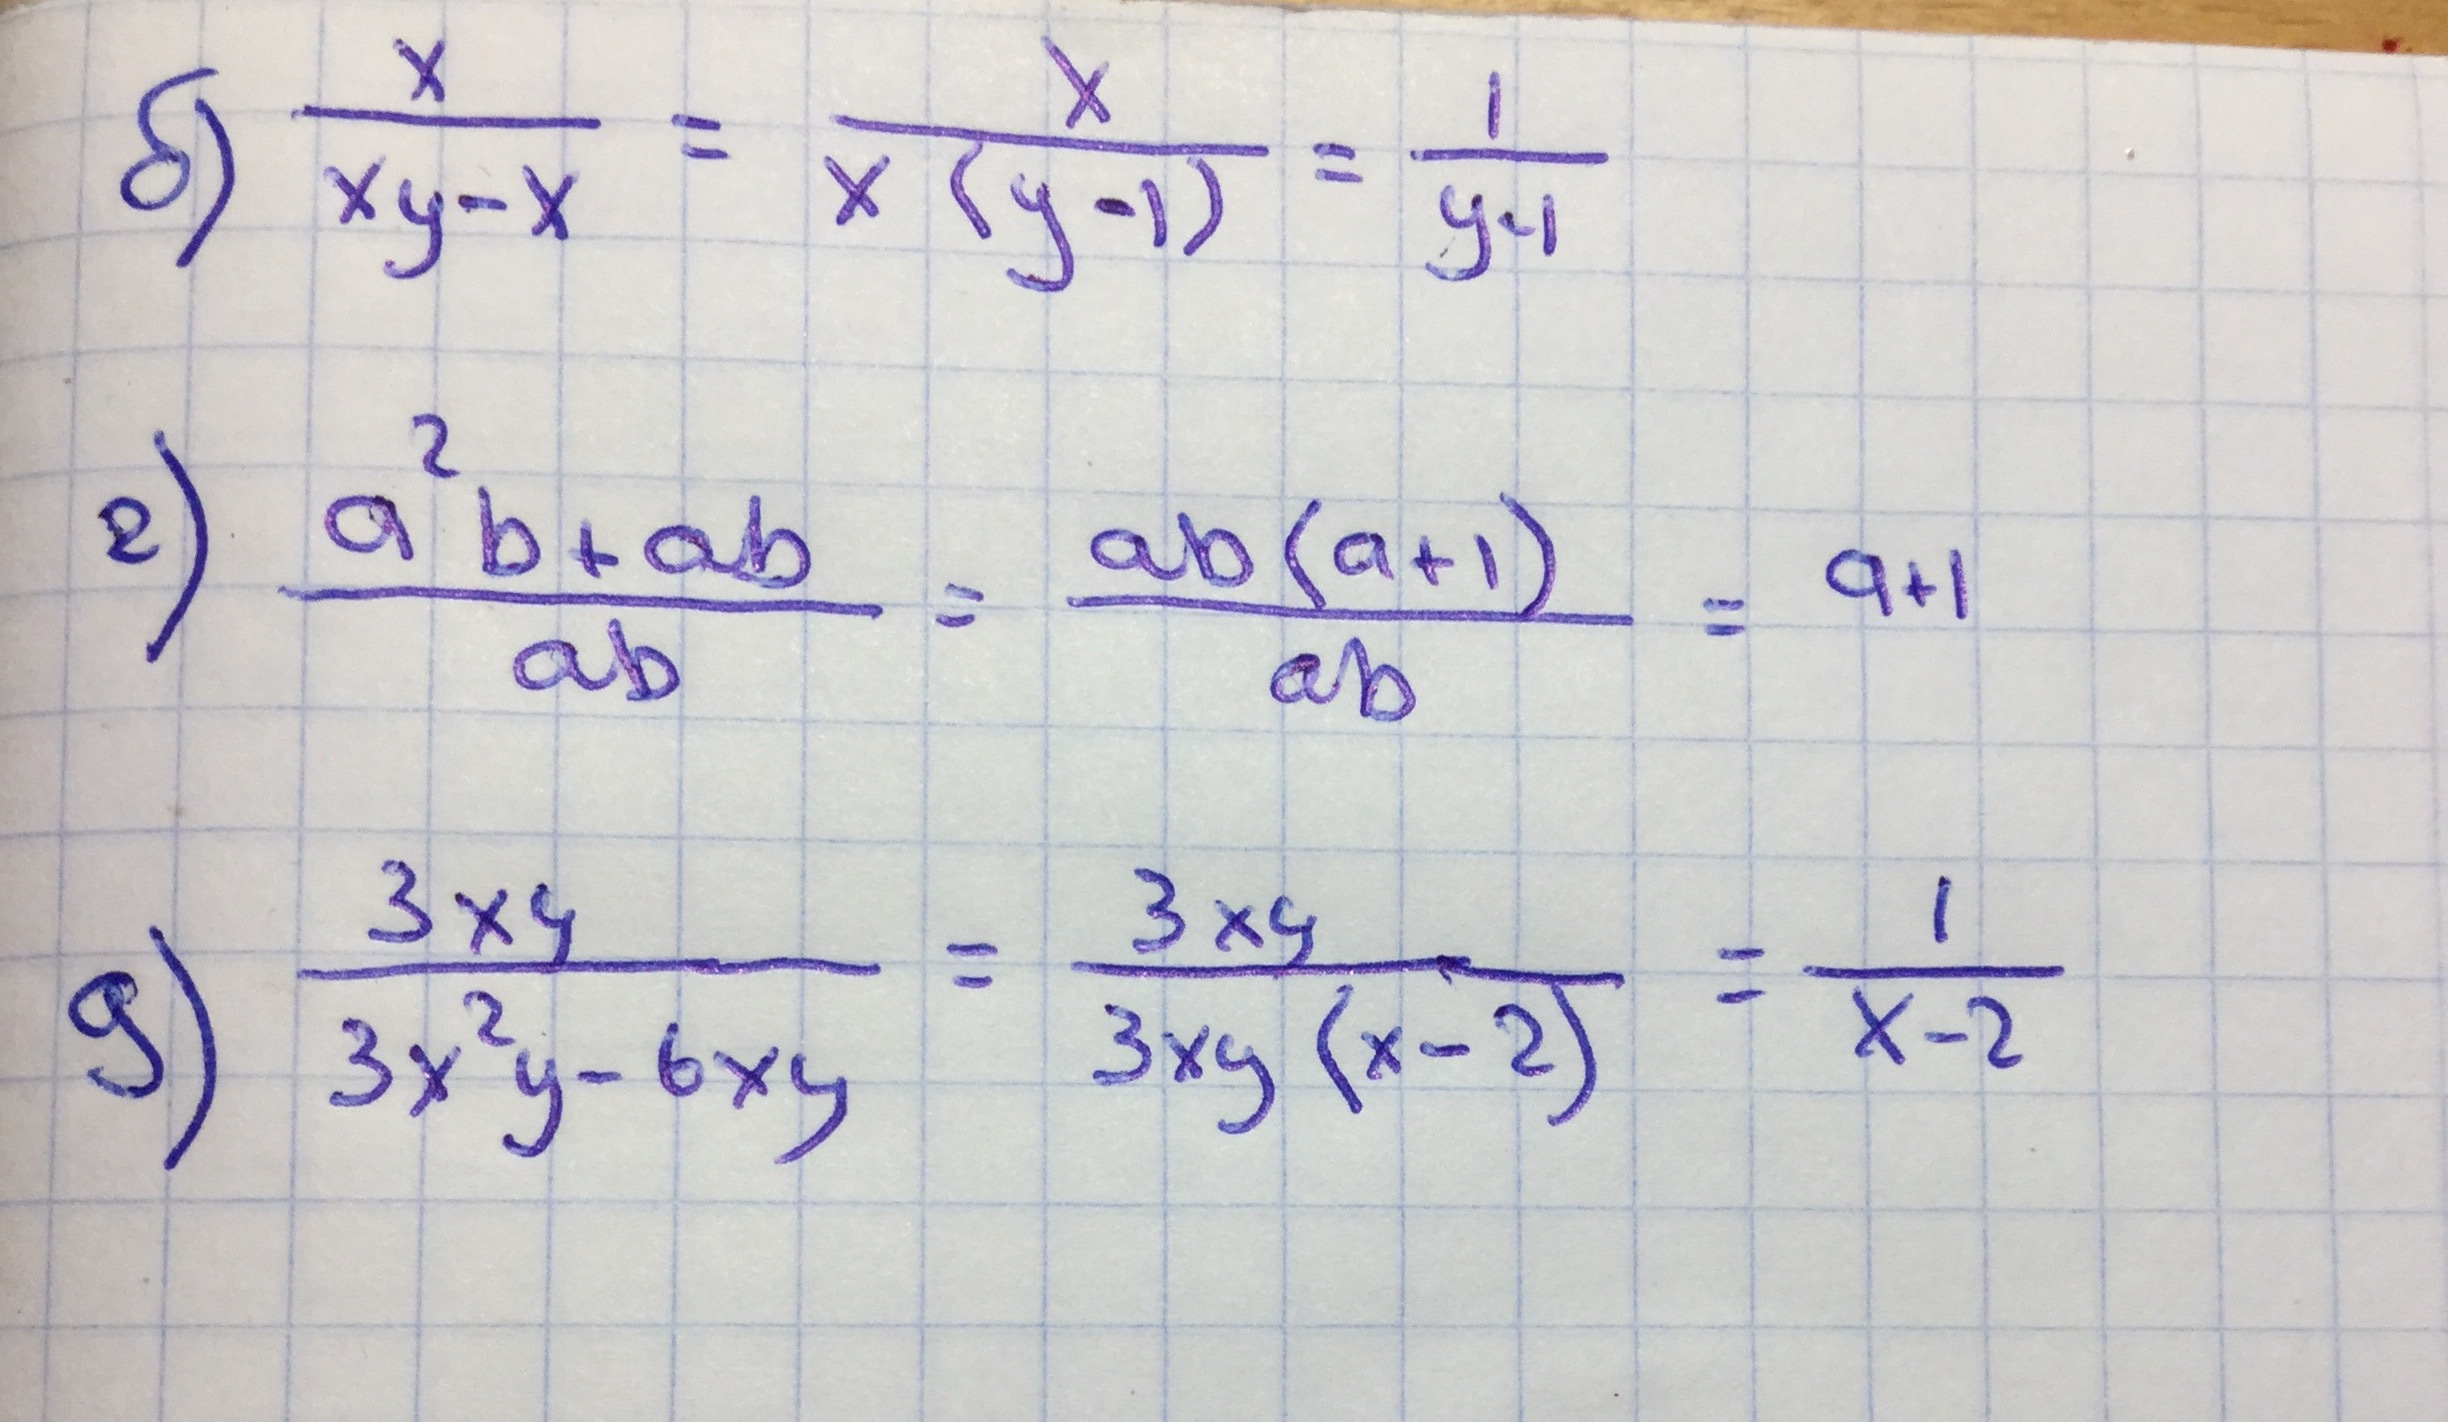 б) x/(xy-x) = x/(x(y-1)) = 1/(y-1)
г) (a²b+ab)/(ab) = (ab(a+1))/(ab) = a+1
д) 3xy/(3x²y-6xy) = 3xy/(3xy(x-2)) = 1/(x-2)